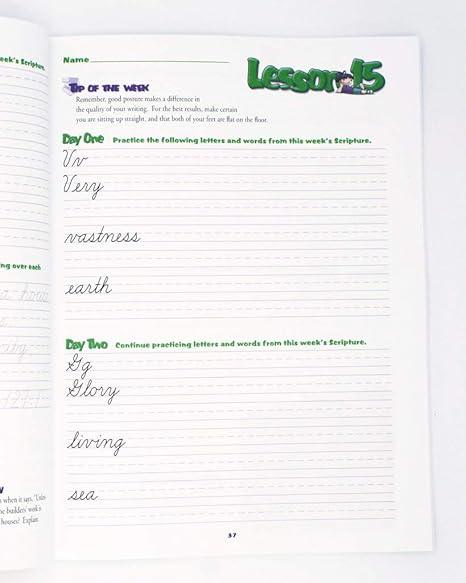 eek's Scripture.
ng over each
when it says, "Unless
he builders' work is
houses? Explain.
Name
Lesson 15
Tip of the Week
Remember, good posture makes a difference in
the quality of your writing. For the best results, make certain
you are sitting up straight, and that both of your feet are flat on the floor.
Day One Practice the following letters and words from this week's Scripture.
Vv
Very
vastness
earth
Day Two Continue practicing letters and words from this week's Scripture.
Gg
Glory
living
sea
37